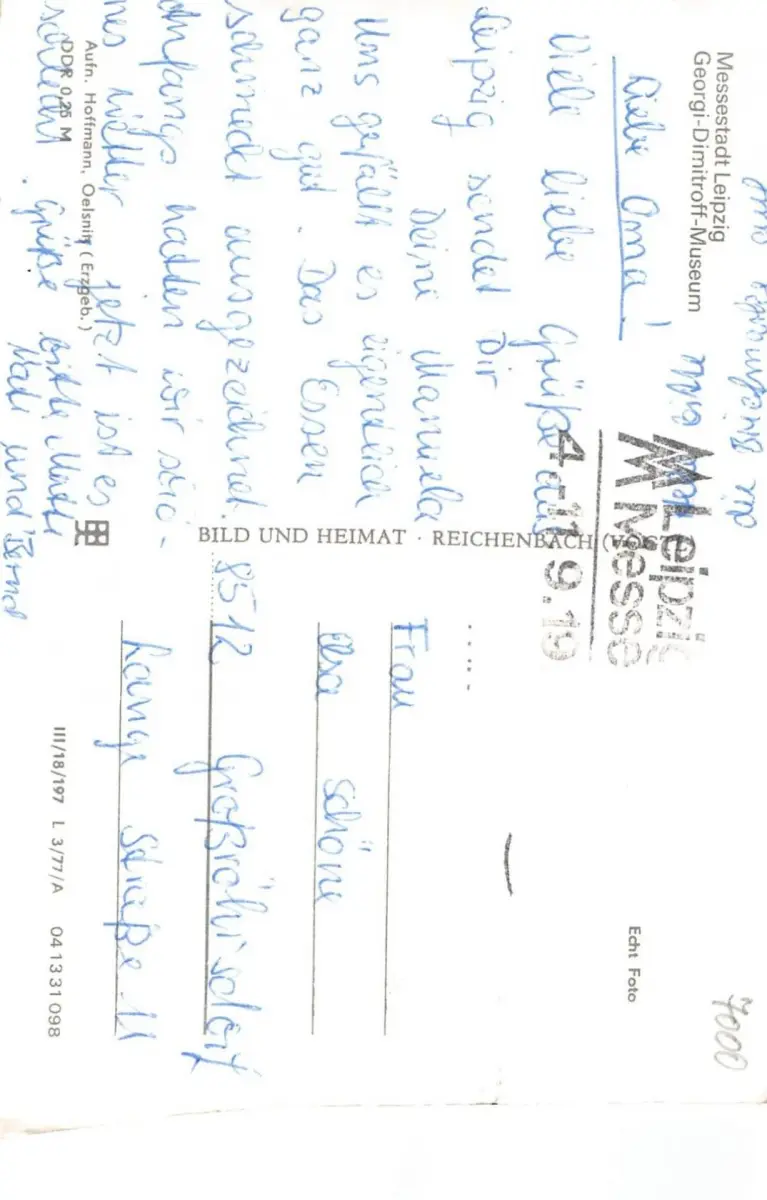 Messestadt Leipzig
Georgi-Dimitroff-Museum
Liebe Oma!
Viele liebe Grüße aus
Leipzig sendet Dir
Deine Manuela
Uns gefällt es eigentlich
ganz gut. Das Essen
schmeckt ausgezeichnet.
Anfangs hatten wir schö-
nes Wetter jetzt ist es
schlecht. Grüße bitte Mutti
Vati und Bernd
Aufn. Hoffmann, Oelsnitz (Erzgeb.)
DDR 0,25 M
BILD UND HEIMAT · REICHENBACH (VOGTL)
Leipzig
Messe
4.-11.9.19
Echt Foto
7000
Frau
Elsa Schöne
8512 Großröhrsdorf
Lange Straße 11
III/18/197 L 3/77/A 041331098